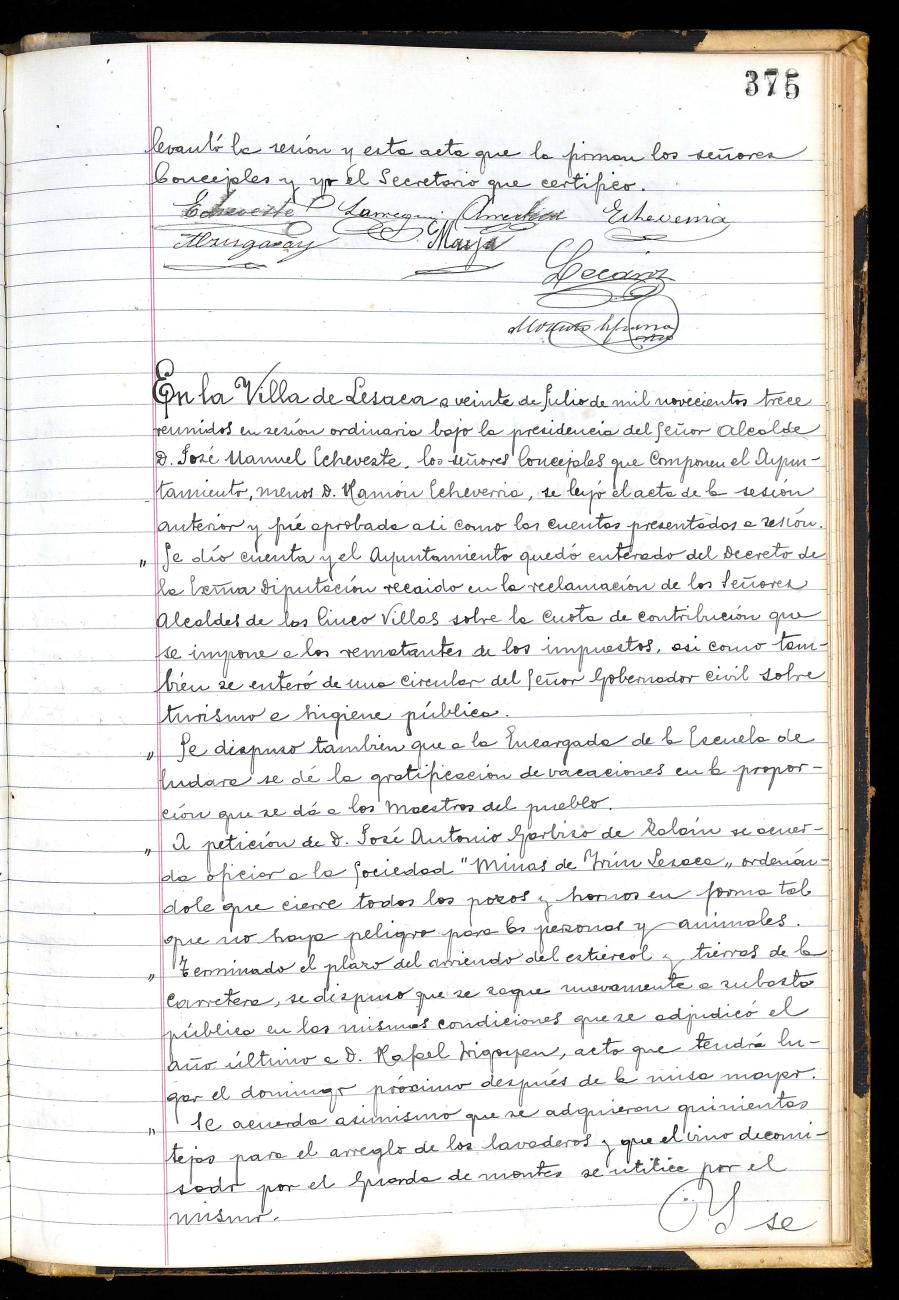 375
levantó la sesión y esta acta que la firman los señores
Concejales y yo el Secretario que certifico.
Echeveste Larregui Echeverria
Maya
Lecároz
En la Villa de Lesaca a veinte de Julio de mil novecientos trece
reunidos en sesión ordinaria bajo la presidencia del Señor Alcalde
D. José Manuel Echeveste, los señores Concejales que componen el Ayun-
tamiento, menos D. Ramón Echeverria, se leyó el acta de la sesión
anterior y fué aprobada asi como las cuentas presentadas a sesión.
„ Se dió cuenta y el Ayuntamiento quedó enterado del Decreto de
la Excma Diputación recaido en la reclamación de los Señores
Alcaldes de las Cinco Villas sobre la cuota de contribución que
se impone a los rematantes de los impuestos, asi como tam-
bién se enteró de una circular del Señor Gobernador civil sobre
turismo e higiene pública.
„ Se dispuso tambien que a la Encargada de la Escuela de
se dé la gratificación de vacaciones en la propor-
ción que se dá a los Maestros del pueblo.
„ A petición de D. José Antonio Garbiso de se acuer-
da oficiar a la Sociedad "Minas de Irún Lesaca„ ordenán-
dole que cierre todos los pozos y hornos en forma tal
que no haya peligro para las personas y animales.
„ Terminado el plazo del arriendo del estiercol y tierras de la
carretera, se dispuso que se saque nuevamente a subasta
pública en las mismas condiciones que se adjudicó el
año último a D. Rafael Irigoyen, acto que tendrá lu-
gar el domingo próximo después de la misa mayor.
„ Se acuerda asimismo que se adquieran quinientas
tejas para el arreglo de los lavaderos y que el vino decomi-
sado por el Guarda de montes se utilice por el
mismo.
Y se